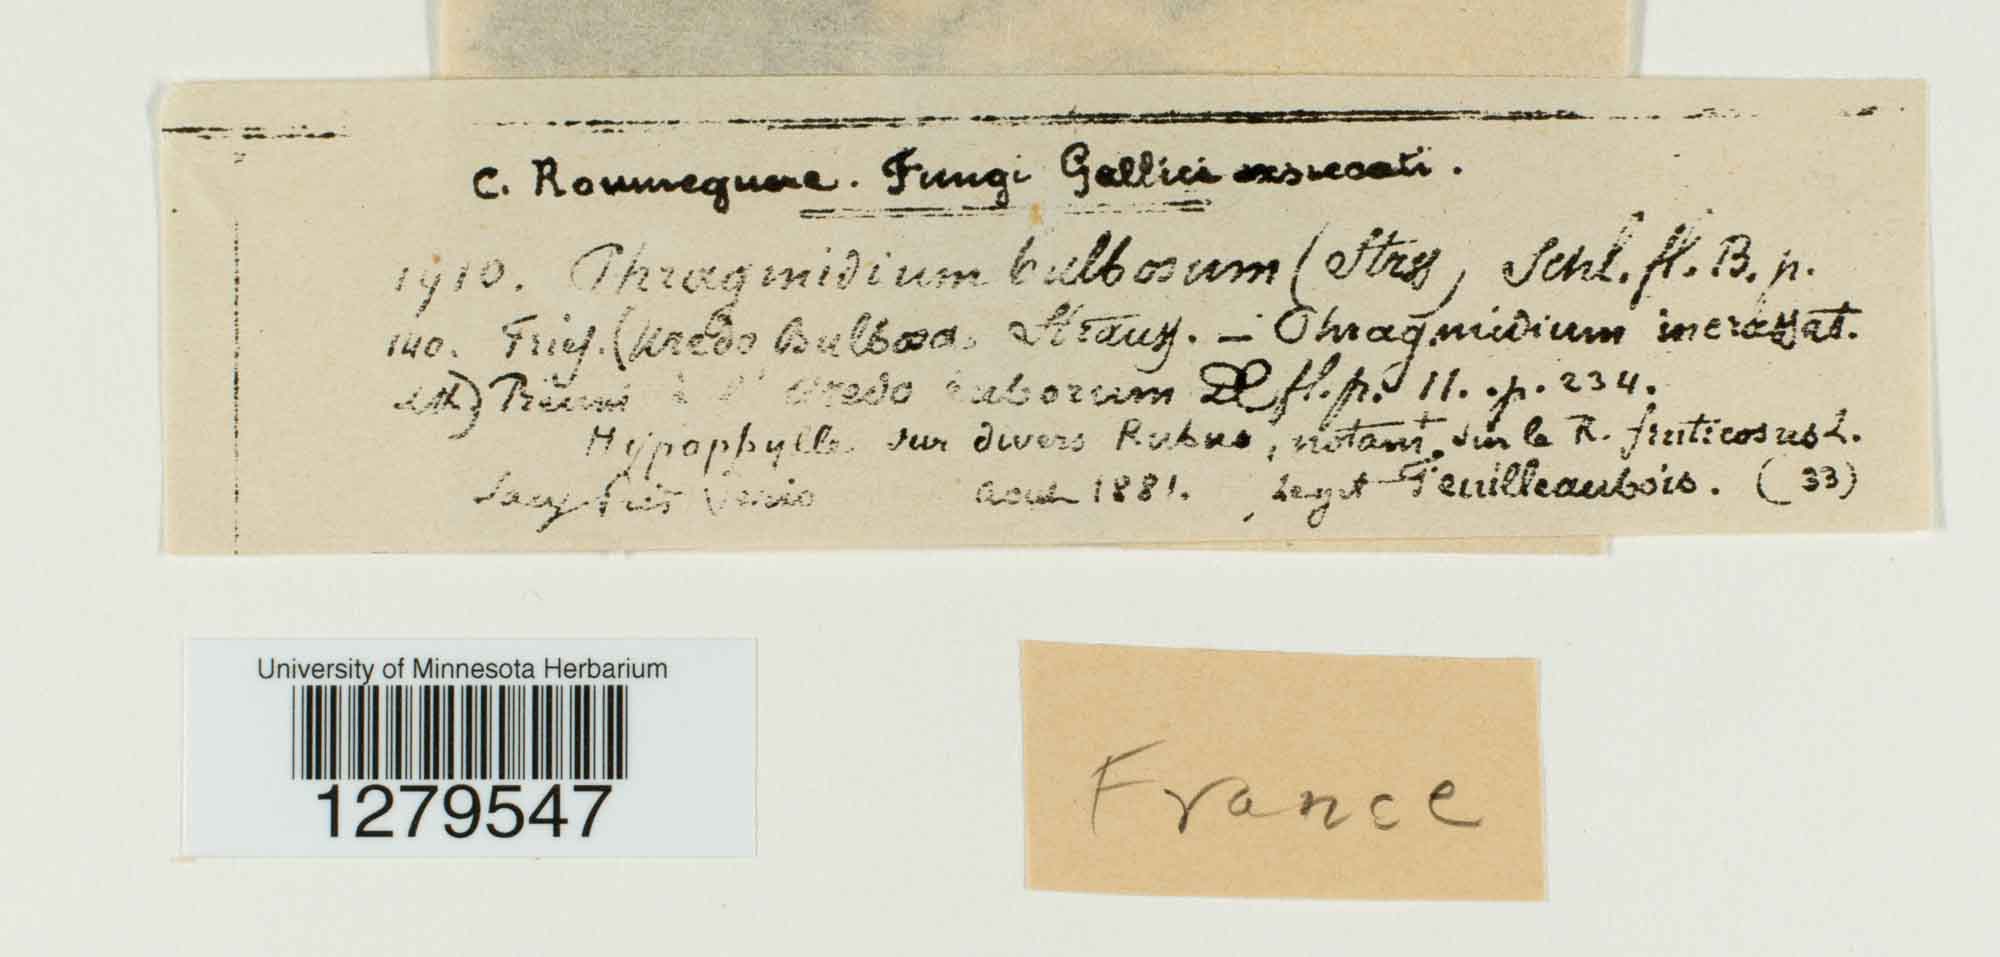 C. Roumeguere. Fungi Gallici exsiccati.
1910. Phragmidium bulbosum (Strss) Schl. fl. B. p.
140. Fries. (Uredo Bulbosa, Strauss. — Phragmidium incrassat.
Lk) Réuni à l' Uredo ruborum DC fl. fr. 11. p. 234.
Hypophylle sur divers Rubus, notamt. sur le R. fruticosus L.
près août 1881. Legit Feuilleaubois. (33)
University of Minnesota Herbarium
1279547
France